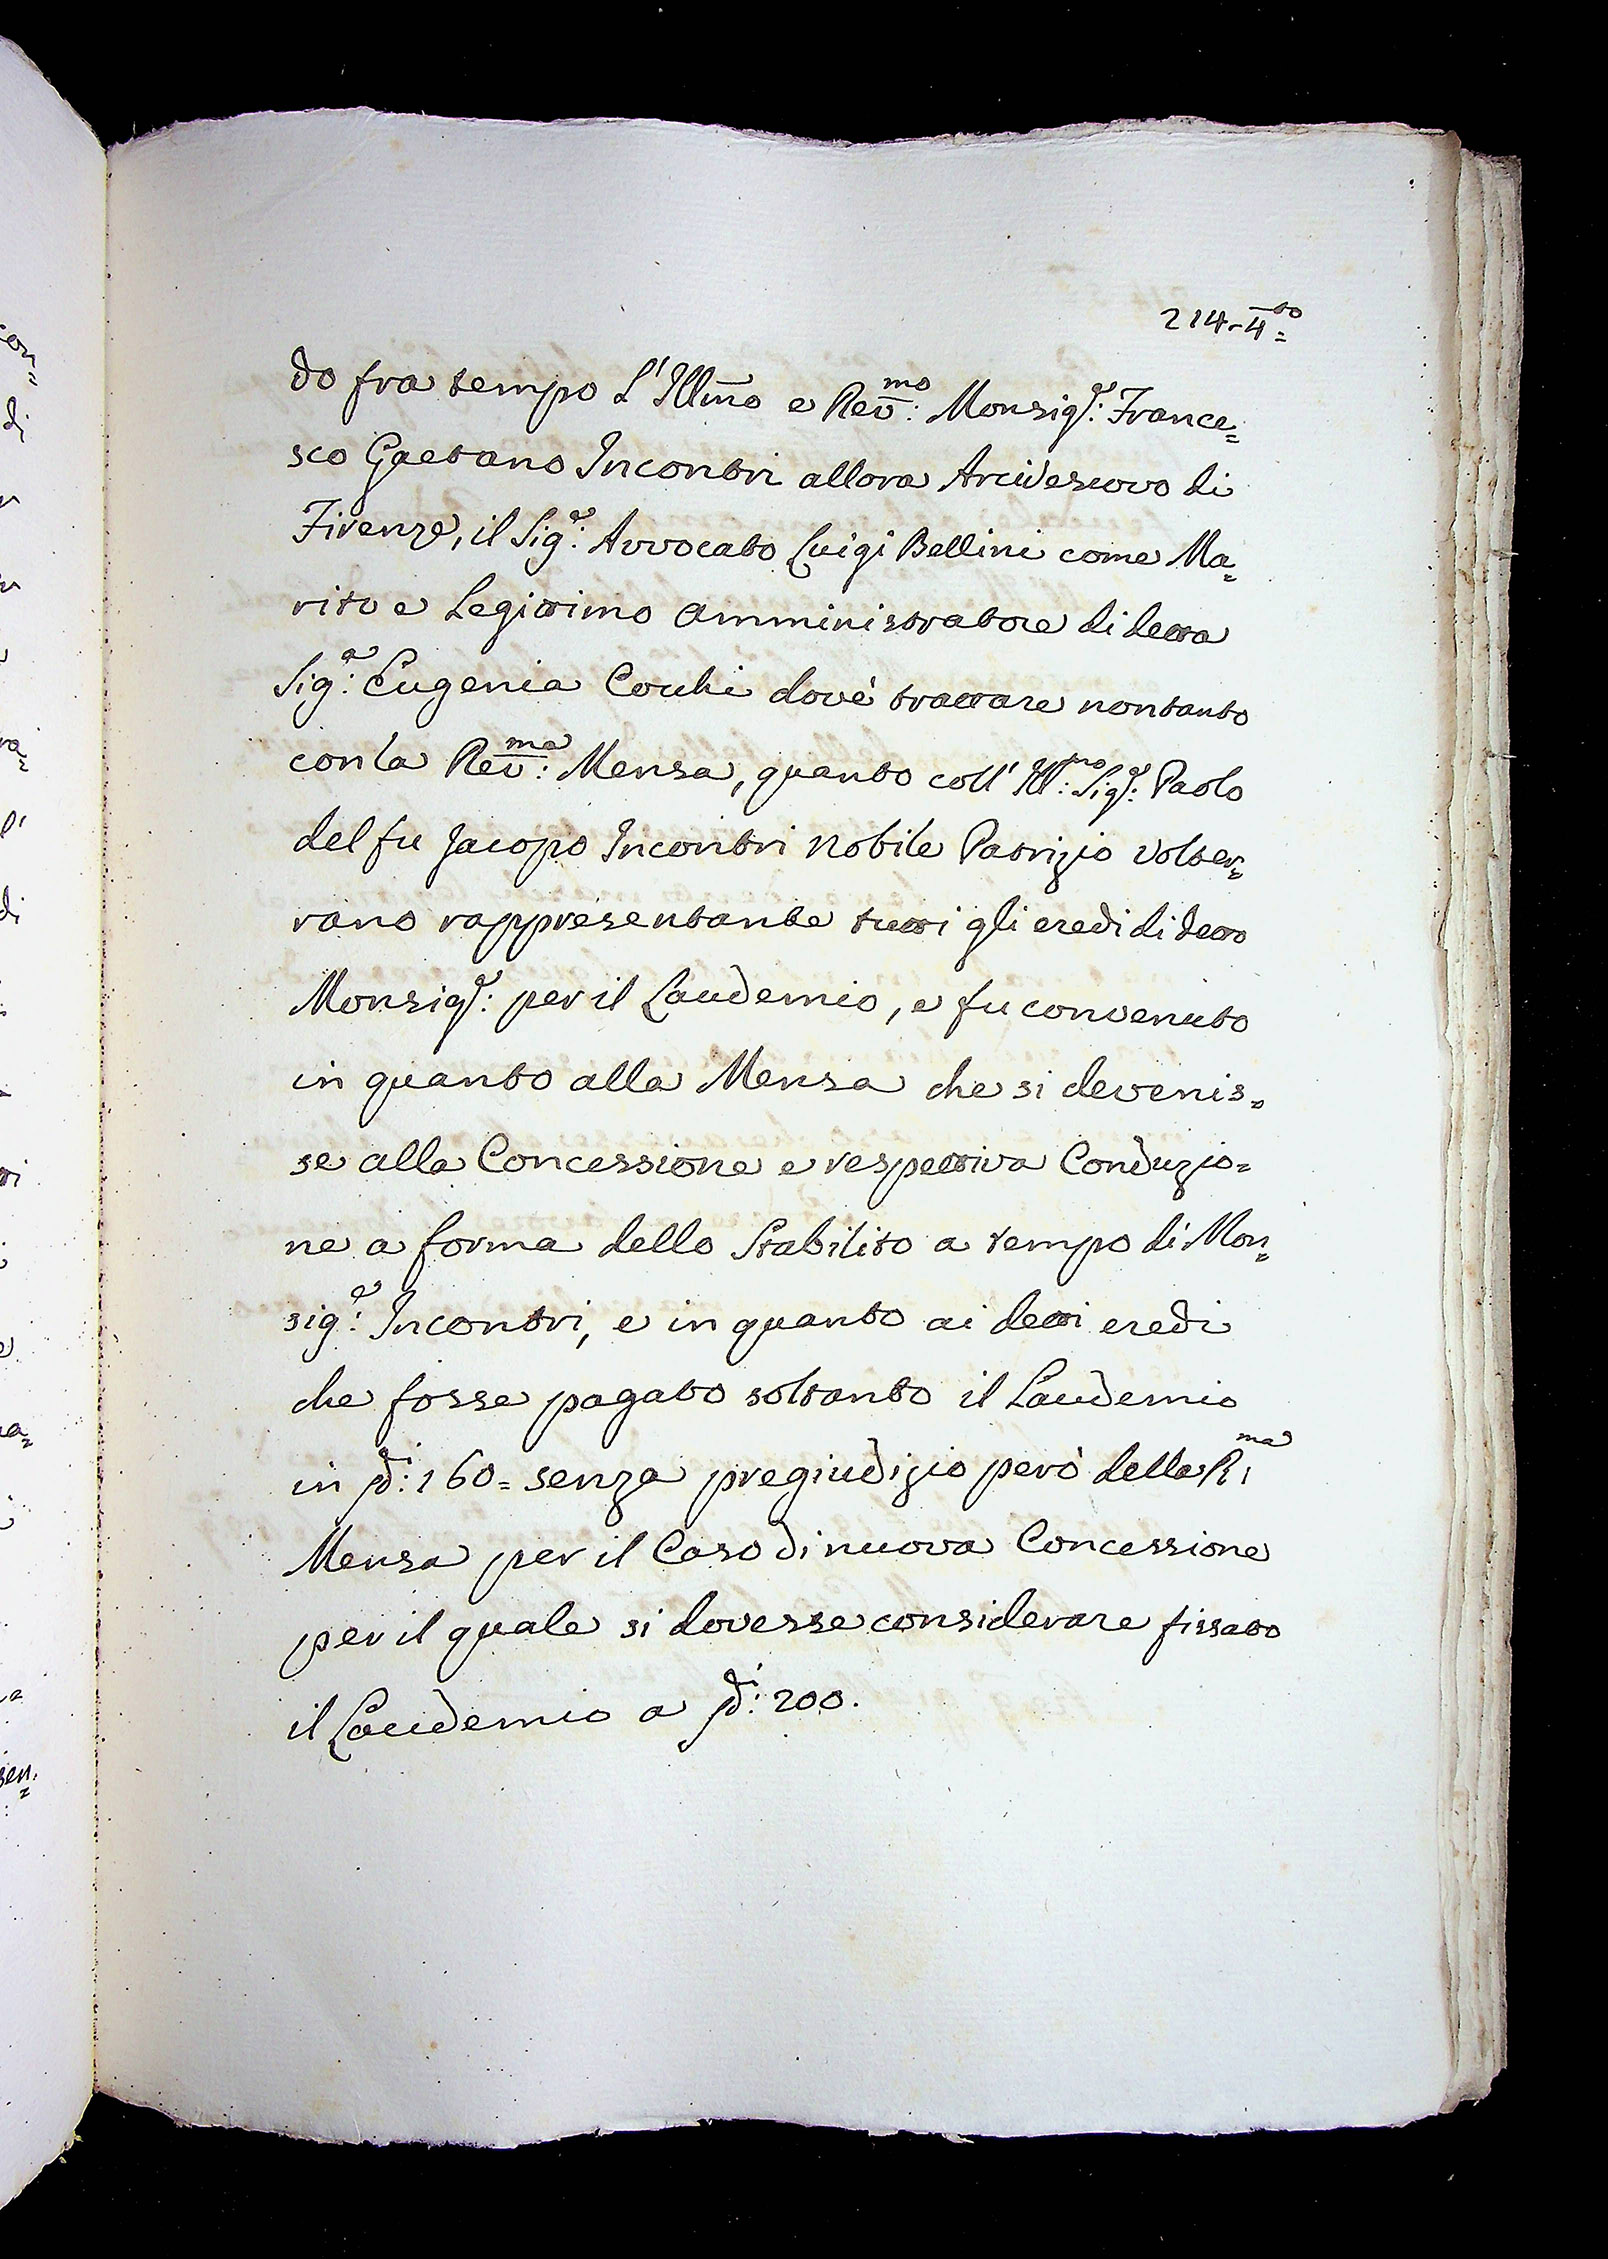 214-4to=
do fra tempo L'Illmo e Revmo: Monsigr: France=
sco Gaetano Incontri allora Arcivescovo di
Firenze, il Sigr: Avvocato Luigi Bellini come Ma=
rito e Legittimo Amministratore di detta
Siga: Eugenia Cocchi dovè trattare non tanto
con la Revma: Mensa, quanto coll' Illmo: Sigr: Paolo
del fu Jacopo Incontri Nobile Patrizio Volter=
rano rappresentante tutti gli eredi di detto
Monsigr: per il Laudemio, e fu convenuto
in quanto alla Mensa che si devenis=
se alla Concessione e respettiva Conduzio=
ne a forma dello Stabilito a tempo di Mon=
sigr: Incontri, e in quanto ai detti eredi
che fosse pagato soltanto il Laudemio
in di: 160= senza pregiudizio però della Rma
Mensa per il Caso di nuova Concessione
per il quale si dovesse considerare fissato
il Laudemio a di: 200.